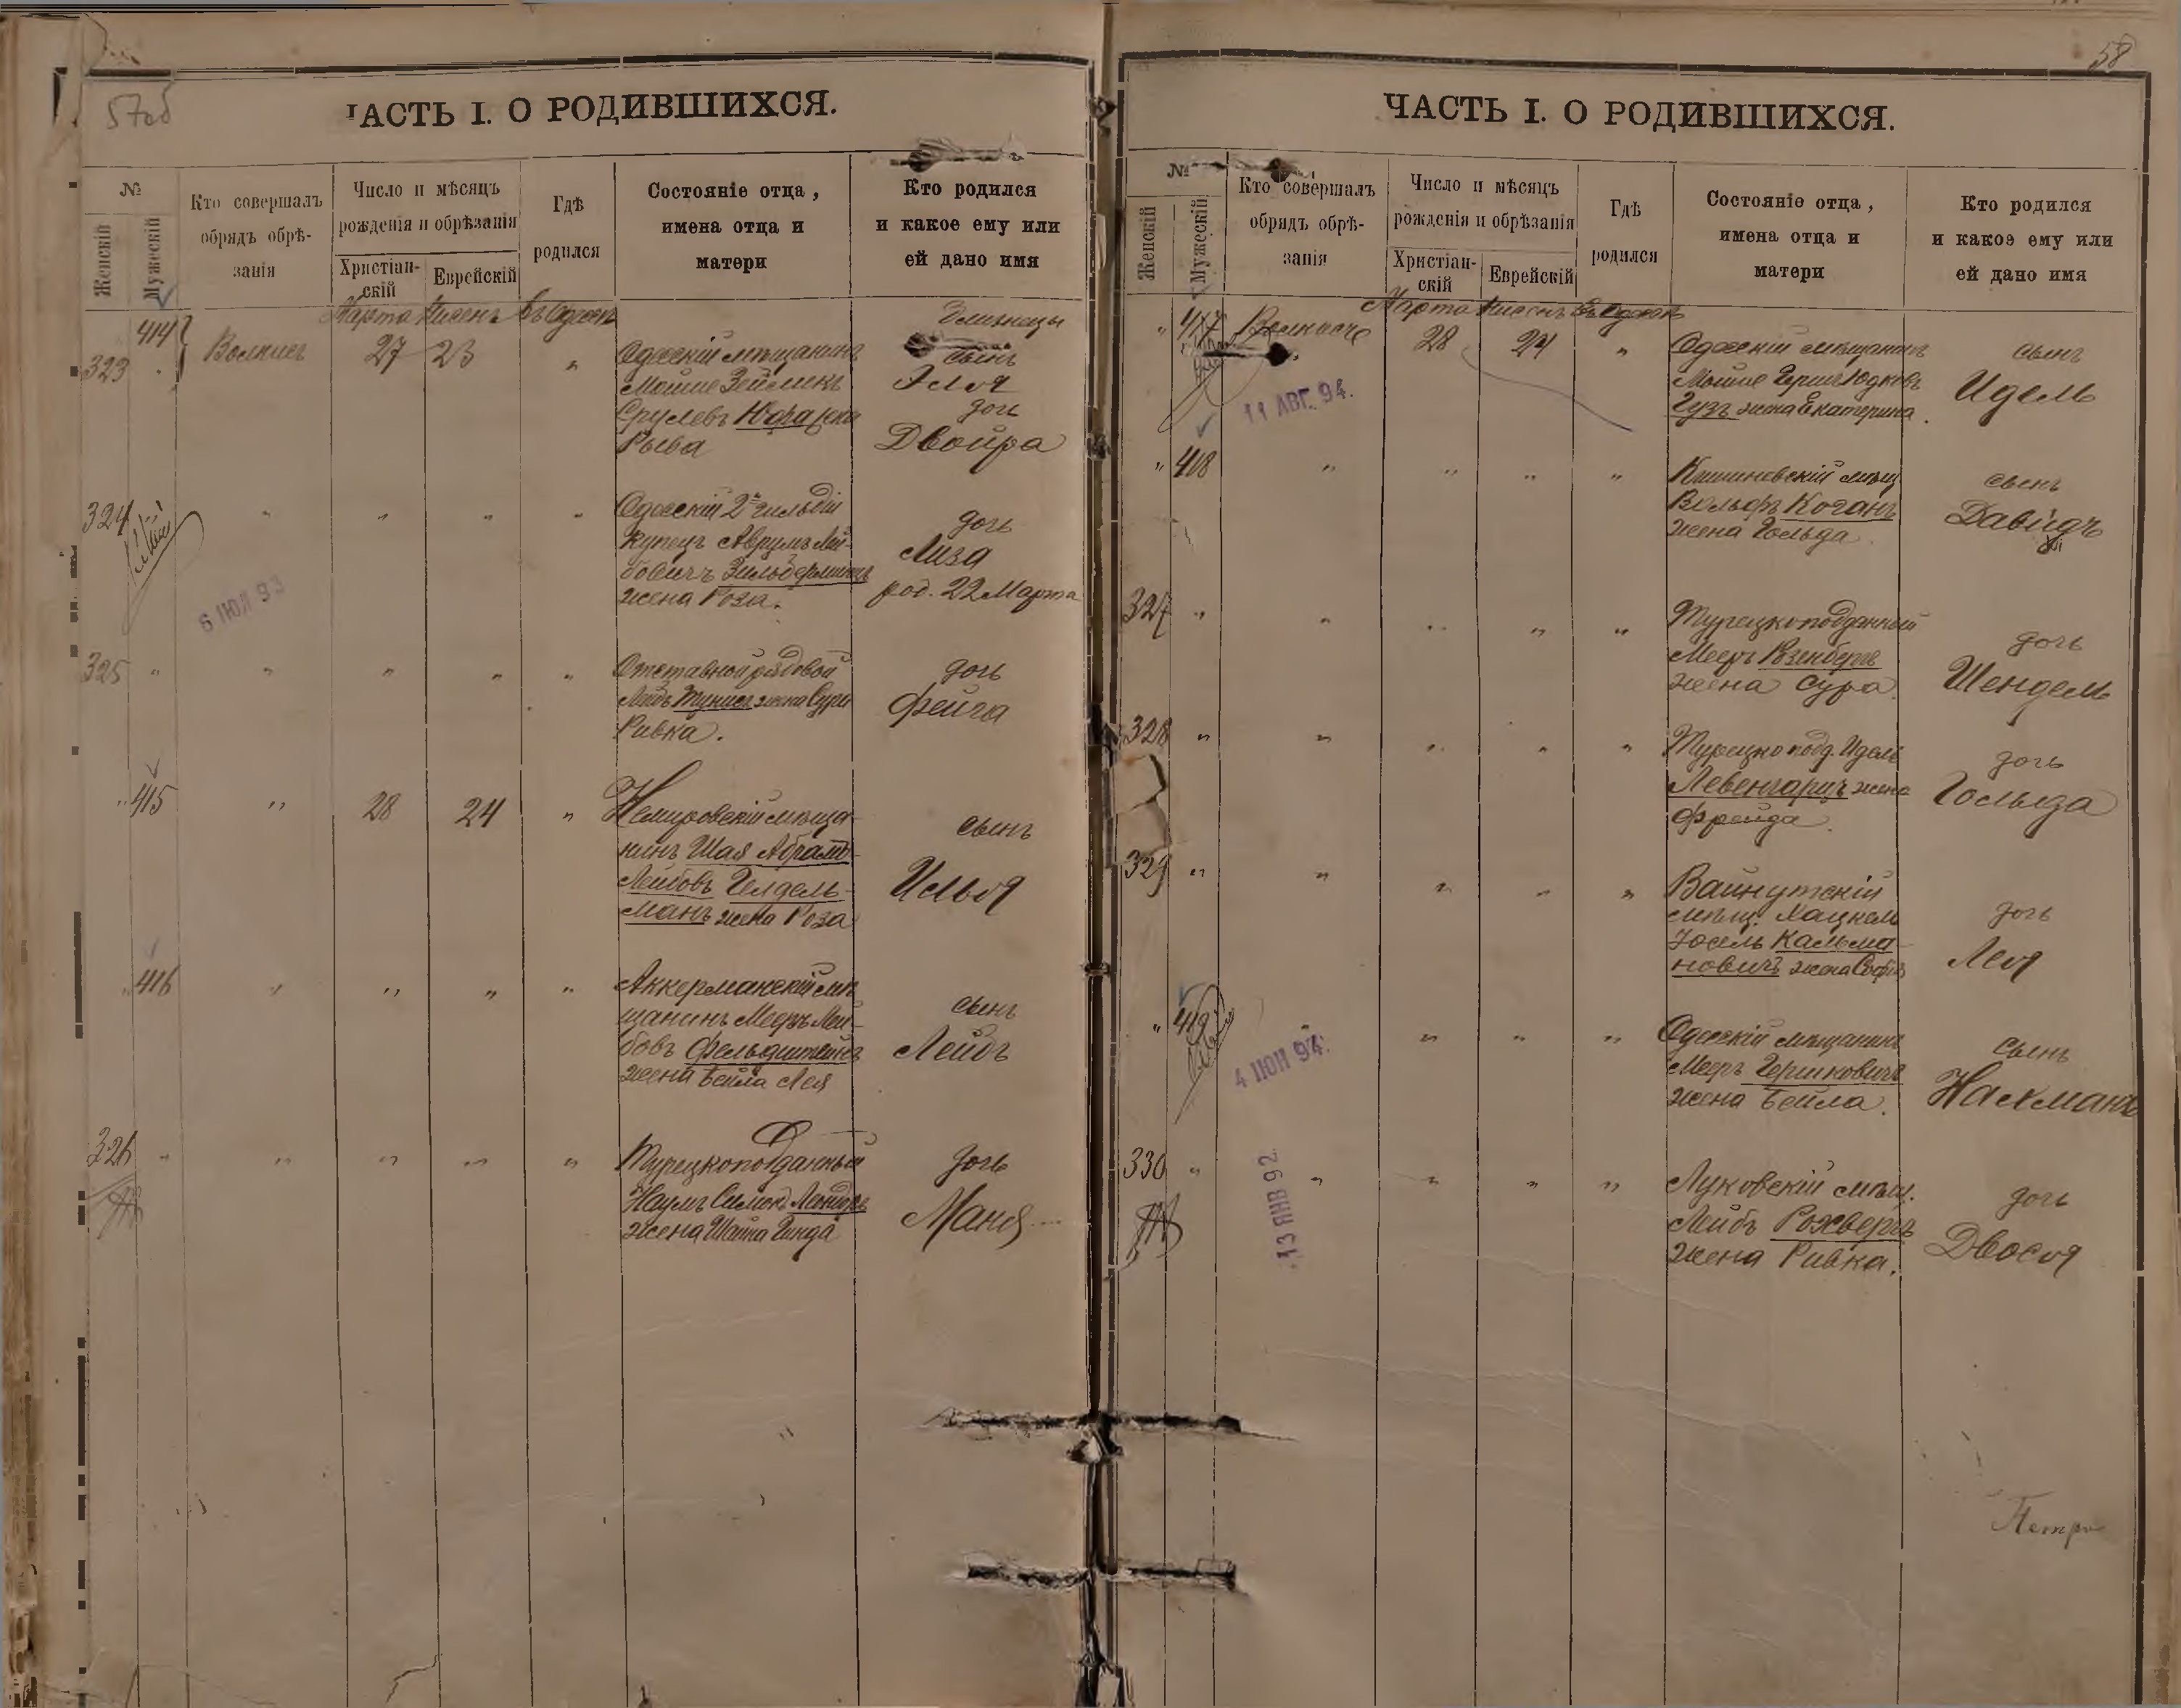 57об
ЧАСТЬ I. О РОДИВШИХСЯ.
№
Женскій
Мужескій
Кто совершалъ
обрядъ обрѣ-
занія
Число и мѣсяцъ
рожденія и обрѣзанія
Христіан-
скій
Еврейскій
Гдѣ
родился
Состояніе отца,
имена отца и
матери
Кто родился
и какое ему или
ей дано имя
Марта Нисенъ Въ Одессѣ
323 414 Волкисъ 27 23 "
Одесскій мѣщанинъ
Мошие Зейликъ
Срулевъ
Рыва
близнецы
сынъ
Эля
дочь
Двойра
324 " " " "
Одесскій 2й гильдіи
купецъ Аврумъ Лей-
бовичъ Зильберминцъ
жена Роза.
дочь
Лиза
род. 22 Марта
6 ІЮЛ 93
325 " " " " "
Отставной рядовой
Лейбъ жена Сура
Ривка.
дочь
Фейга
" 415 " 28 24 "
Немировскій мѣща-
нинъ Шая Абрамъ-
Лейбовъ Гелдель-
манъ жена Роза
сынъ
Илья
" 416 " " " "
Аккерманскій мѣ-
щанинъ Мееръ Лей-
бовъ Фельдштейнъ
жена Бейла Лея
сынъ
Лейбъ
326 " " " " "
Турецкоподданный
Наумъ Симонъ
жена
дочь
Маня
58
ЧАСТЬ I. О РОДИВШИХСЯ.
№
Женскій
Мужескій
Кто совершалъ
обрядъ обрѣ-
занія
Число и мѣсяцъ
рожденія и обрѣзанія
Христіан-
скій
Еврейскій
Гдѣ
родился
Состояніе отца,
имена отца и
матери
Кто родился
и какое ему или
ей дано имя
Марта Нисенъ Въ Одессѣ
" 417 Волкисъ 28 24 "
Одесскій мѣщанинъ
Мошие Герш Юдковъ
Гузъ жена Екатерина.
сынъ
Идель
11 АВГ. 94.
" 418 " " " "
Кишиневскій мѣщ.
Вольфъ Коганъ
жена Гольда
сынъ
Давидъ
327 " " " " "
Турецкоподданный
Мееръ Розенбергъ
жена Сура
дочь
Шендель
328 " " " " "
Турецкоподд. Идель
Левенгарцъ жена
Фрейда.
дочь
Гольда
329 " " " " "
Вайнутскій
мѣщ. Хацкель
Іосель Кальма-
новичъ жена Софія
дочь
Лея
" 419 " " " "
Одесскій мѣщанинъ
Мееръ Гершковичъ
жена Бейла.
сынъ
Нахманъ
4 ІЮН 94.
330 " " " " "
Луковскій мѣщ.
Лейбъ
жена Ривка.
дочь
Двося
13 ЯНВ 92